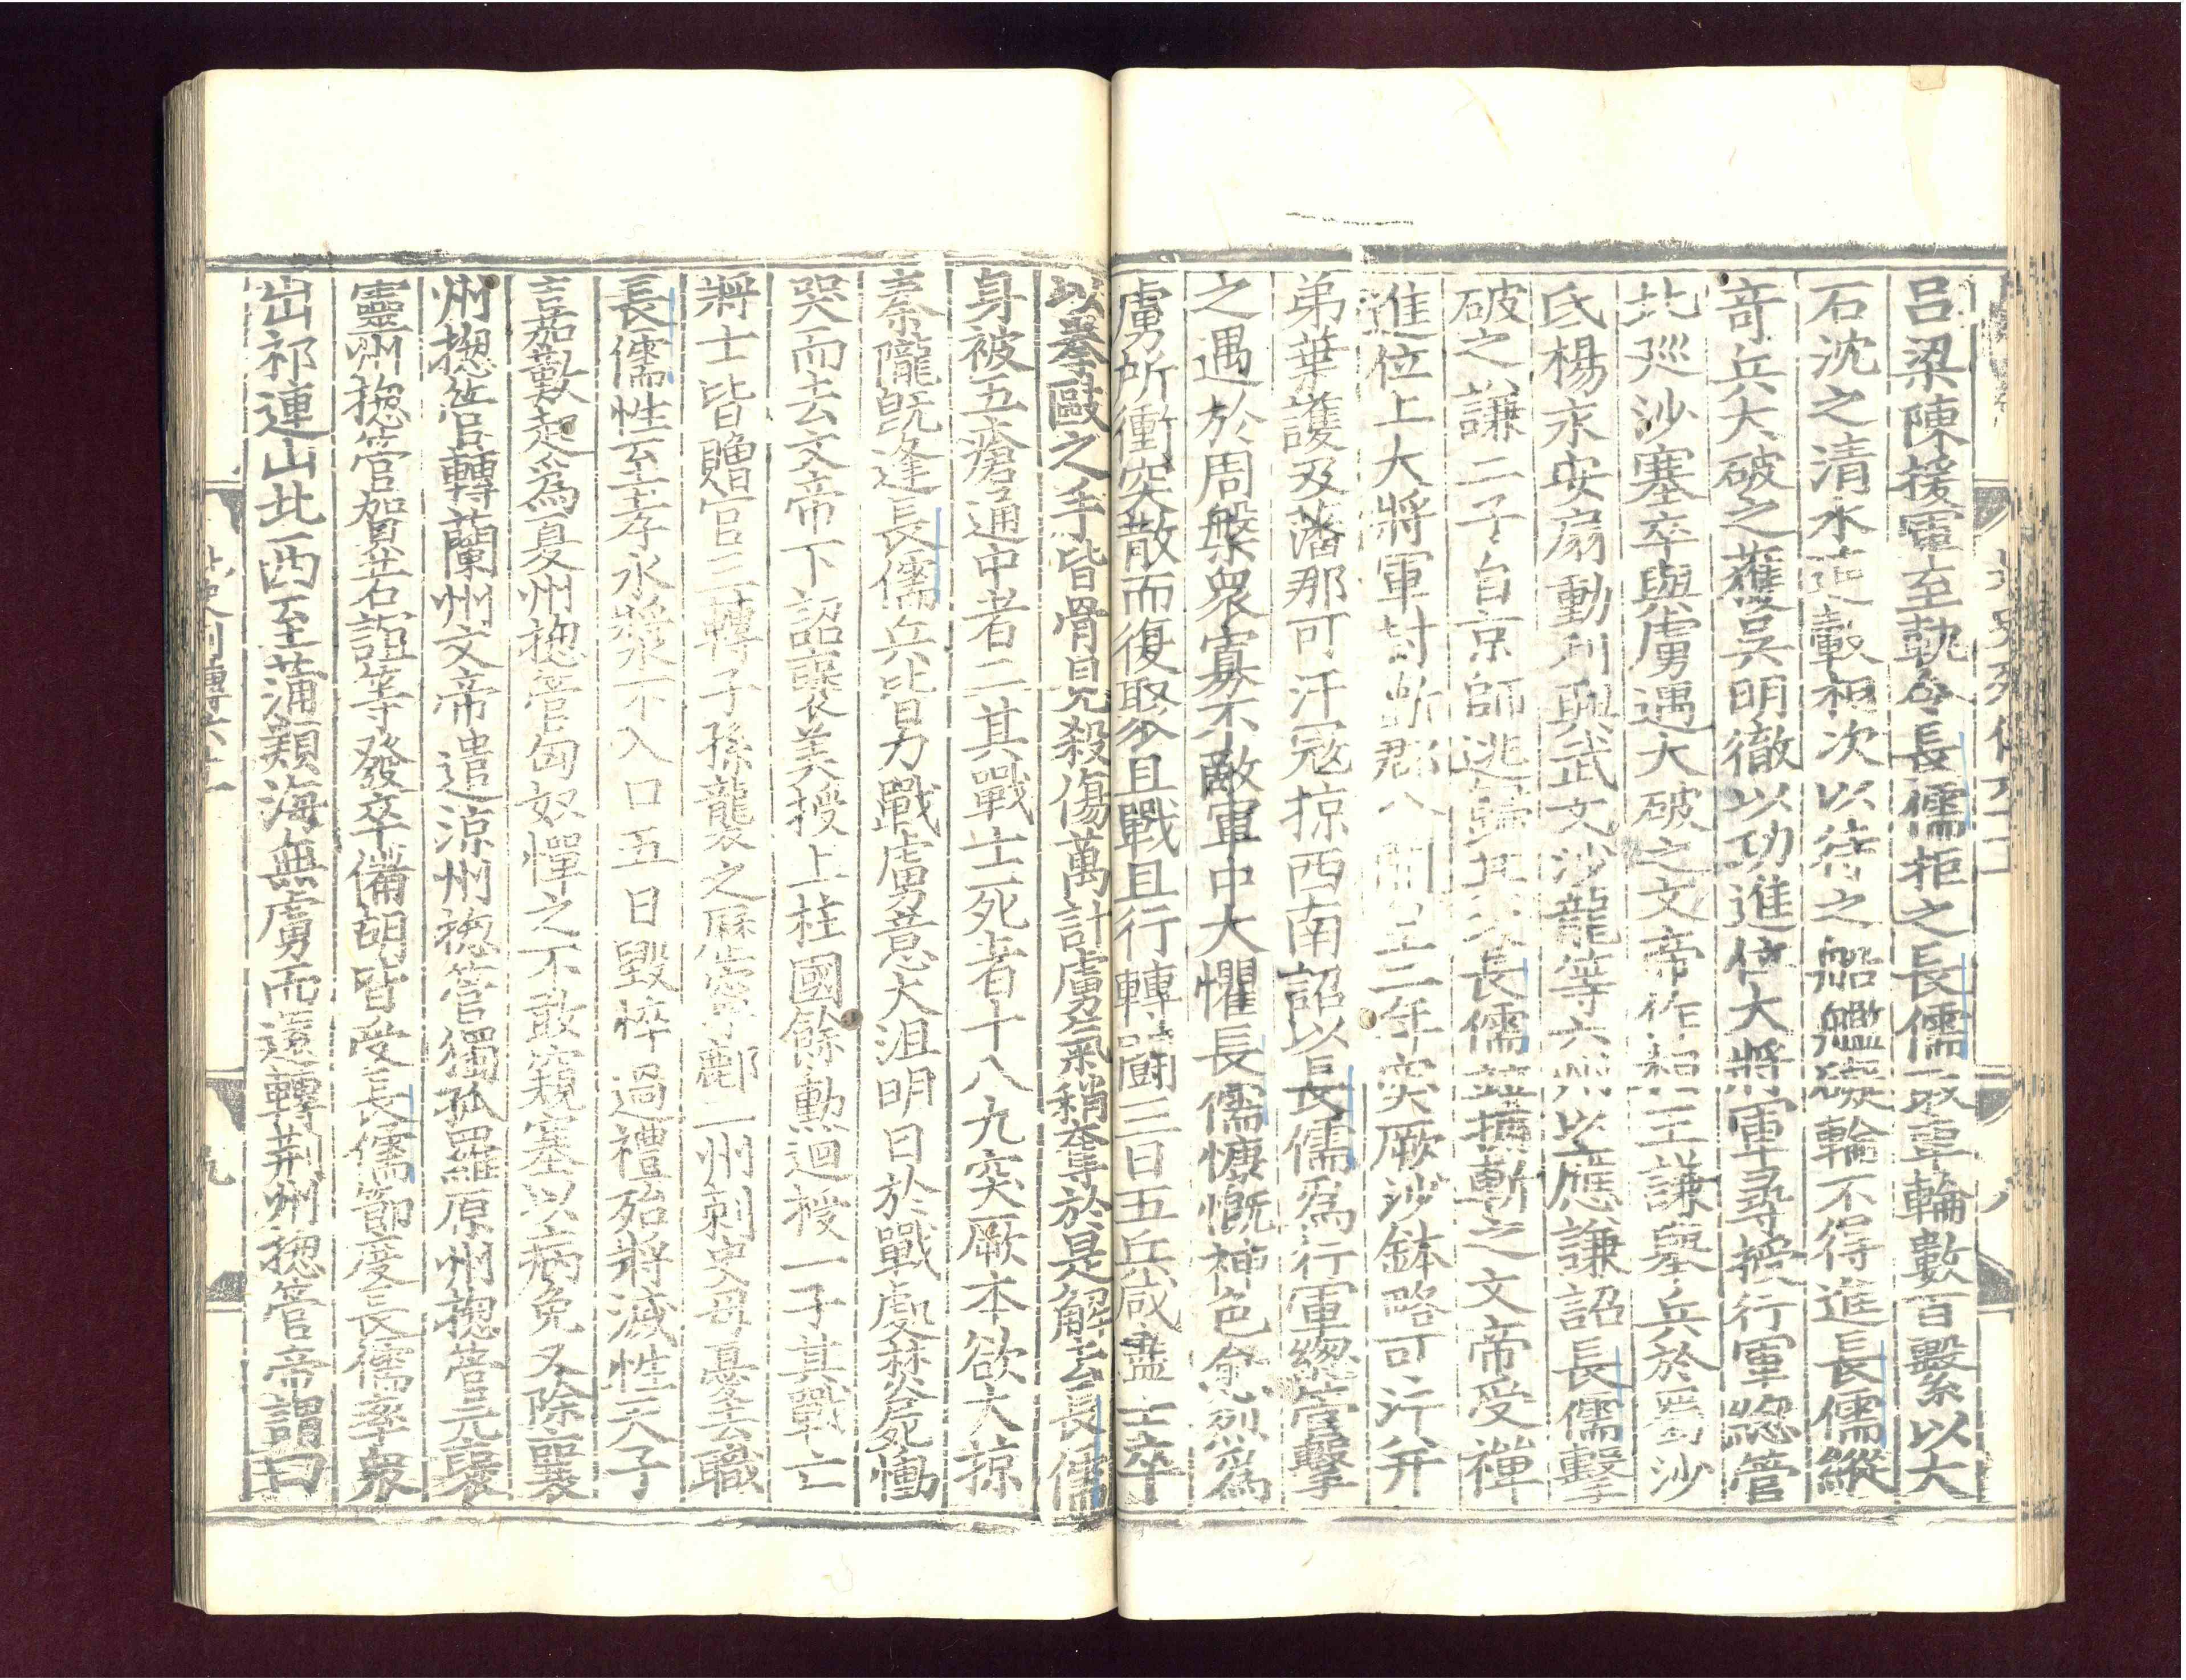 呂梁陳援軍至軌令長儒拒之長儒取車輪數百繫以大
石沈之清水連轂相次以待之船艦礙輪不得進長儒縱
竒兵大破之獲吳明徹以功進位大將軍尋授行軍緫管
北廵沙塞卒與虜遇大破之文帝作相王謙舉兵於蜀沙
氐楊永安扇動利興武文沙龍等六州以應謙詔長儒擊
破之謙二子自京師逃歸其父長儒並擒斬之文帝受禪
進位上大將軍封蘄郡公開皇二年突厥沙鉢略可汗并
弟葉護及潘那可汗冦掠西南詔以長儒爲行軍緫管擊
之遇於周槃衆寡不敵軍中大懼長儒慷慨神色愈烈爲
虜所衝突散而復聚且戰且行轉鬭三日五兵咸盡士卒
以拳毆之手皆骨見殺傷萬計虜氣稍奪於是解去長儒
身被五瘡通中者二其戰士死者十八九突厥本欲大掠
秦隴旣逢長儒兵皆力戰虜意大沮明日於戰處焚屍慟
哭而去文帝下詔襃美授上柱國餘勲迴授一子其戰亡
將士皆贈官三轉子孫襲之歷寧鄜二州刺史母憂去職
長儒性至孝水漿不入口五日毀悴過禮殆將滅性天子
嘉歎起爲夏州揔管匈奴憚之不敢窺塞以病免又除襄
州揔管轉蘭州文帝遣凉州揔管獨孤羅原州揔管元襃
靈州揔管賀若誼等發卒備胡皆受長儒節度長儒率衆
出祁連山北西至蒲類海無虜而還轉荆州揔管帝謂曰
北史列傳六十一
九